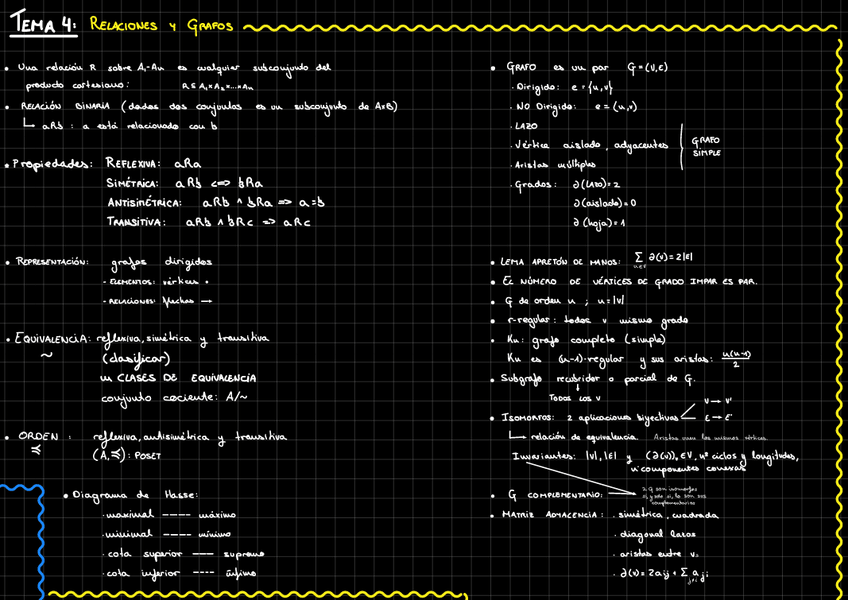 TEMA 4: RELACIONES Y GRAFOS
• Una relación R sobre A₁-An es cualquier subconjunto del
producto cartesiano: R ⊆ A₁×A₂×...×An
• RELACIÓN BINARIA (dados dos conjuntos es un subconjunto de A×B)
↳ aRb : a está relacionado con b
• Propiedades: REFLEXIVA: aRa
SIMÉTRICA: aRb <=> bRa
ANTISIMÉTRICA: aRb ∧ bRa => a=b
TRANSITIVA: aRb ∧ bRc => aRc
• REPRESENTACIÓN: grafos dirigidos
- ELEMENTOS: vértices •
- RELACIONES: flechas →
• EQUIVALENCIA: reflexiva, simétrica y transitiva
~ (clasificar)
CLASES DE EQUIVALENCIA
conjunto cociente: A/~
• ORDEN : reflexiva, antisimétrica y transitiva
≼ (A,≼): POSET
• Diagrama de Hasse:
· maximal ---- máximo
· minimal ---- mínimo
· cota superior --- supremo
· cota inferior ---- ínfimo
• GRAFO es un par G=(V,E)
· Dirigido: e={u,v}
· NO Dirigido: e=(u,v)
· LAZO
· Vértice aislado, adyacentes
· Aristas múltiples
GRAFO
SIMPLE
· Grados: ∂(LAZO)=2
∂(aislado)=0
∂(hoja)=1
• LEMA APRETÓN DE MANOS: ∑ ∂(v)=2|E|
• EL NÚMERO DE VÉRTICES DE GRADO IMPAR ES PAR.
• G de orden n ; n=|V|
• r-regular: todos v mismo grado
• Kn: grafo completo (simple)
Kn es (n-1)-regular y sus aristas: n(n-1)/2
• Subgrafo recubridor o parcial de G.
↓
TODOS LOS V
• ISOMORFOS: 2 aplicaciones biyectivas
V → V'
E → E'
↳ relación de equivalencia. Aristas unen los mismos vértices.
Invariantes: |V|, |E| y (∂(v)), ∈V, nº ciclos y longitudes,
n componentes conexas
• G COMPLEMENTARIO:
2 G son isomorfos
si, y solo si, lo son sus
complementarios
• MATRIZ ADYACENCIA: · simétrica, cuadrada
· diagonal lazos
· aristas entre v.
· ∂(v)=2aij + ∑ a ji